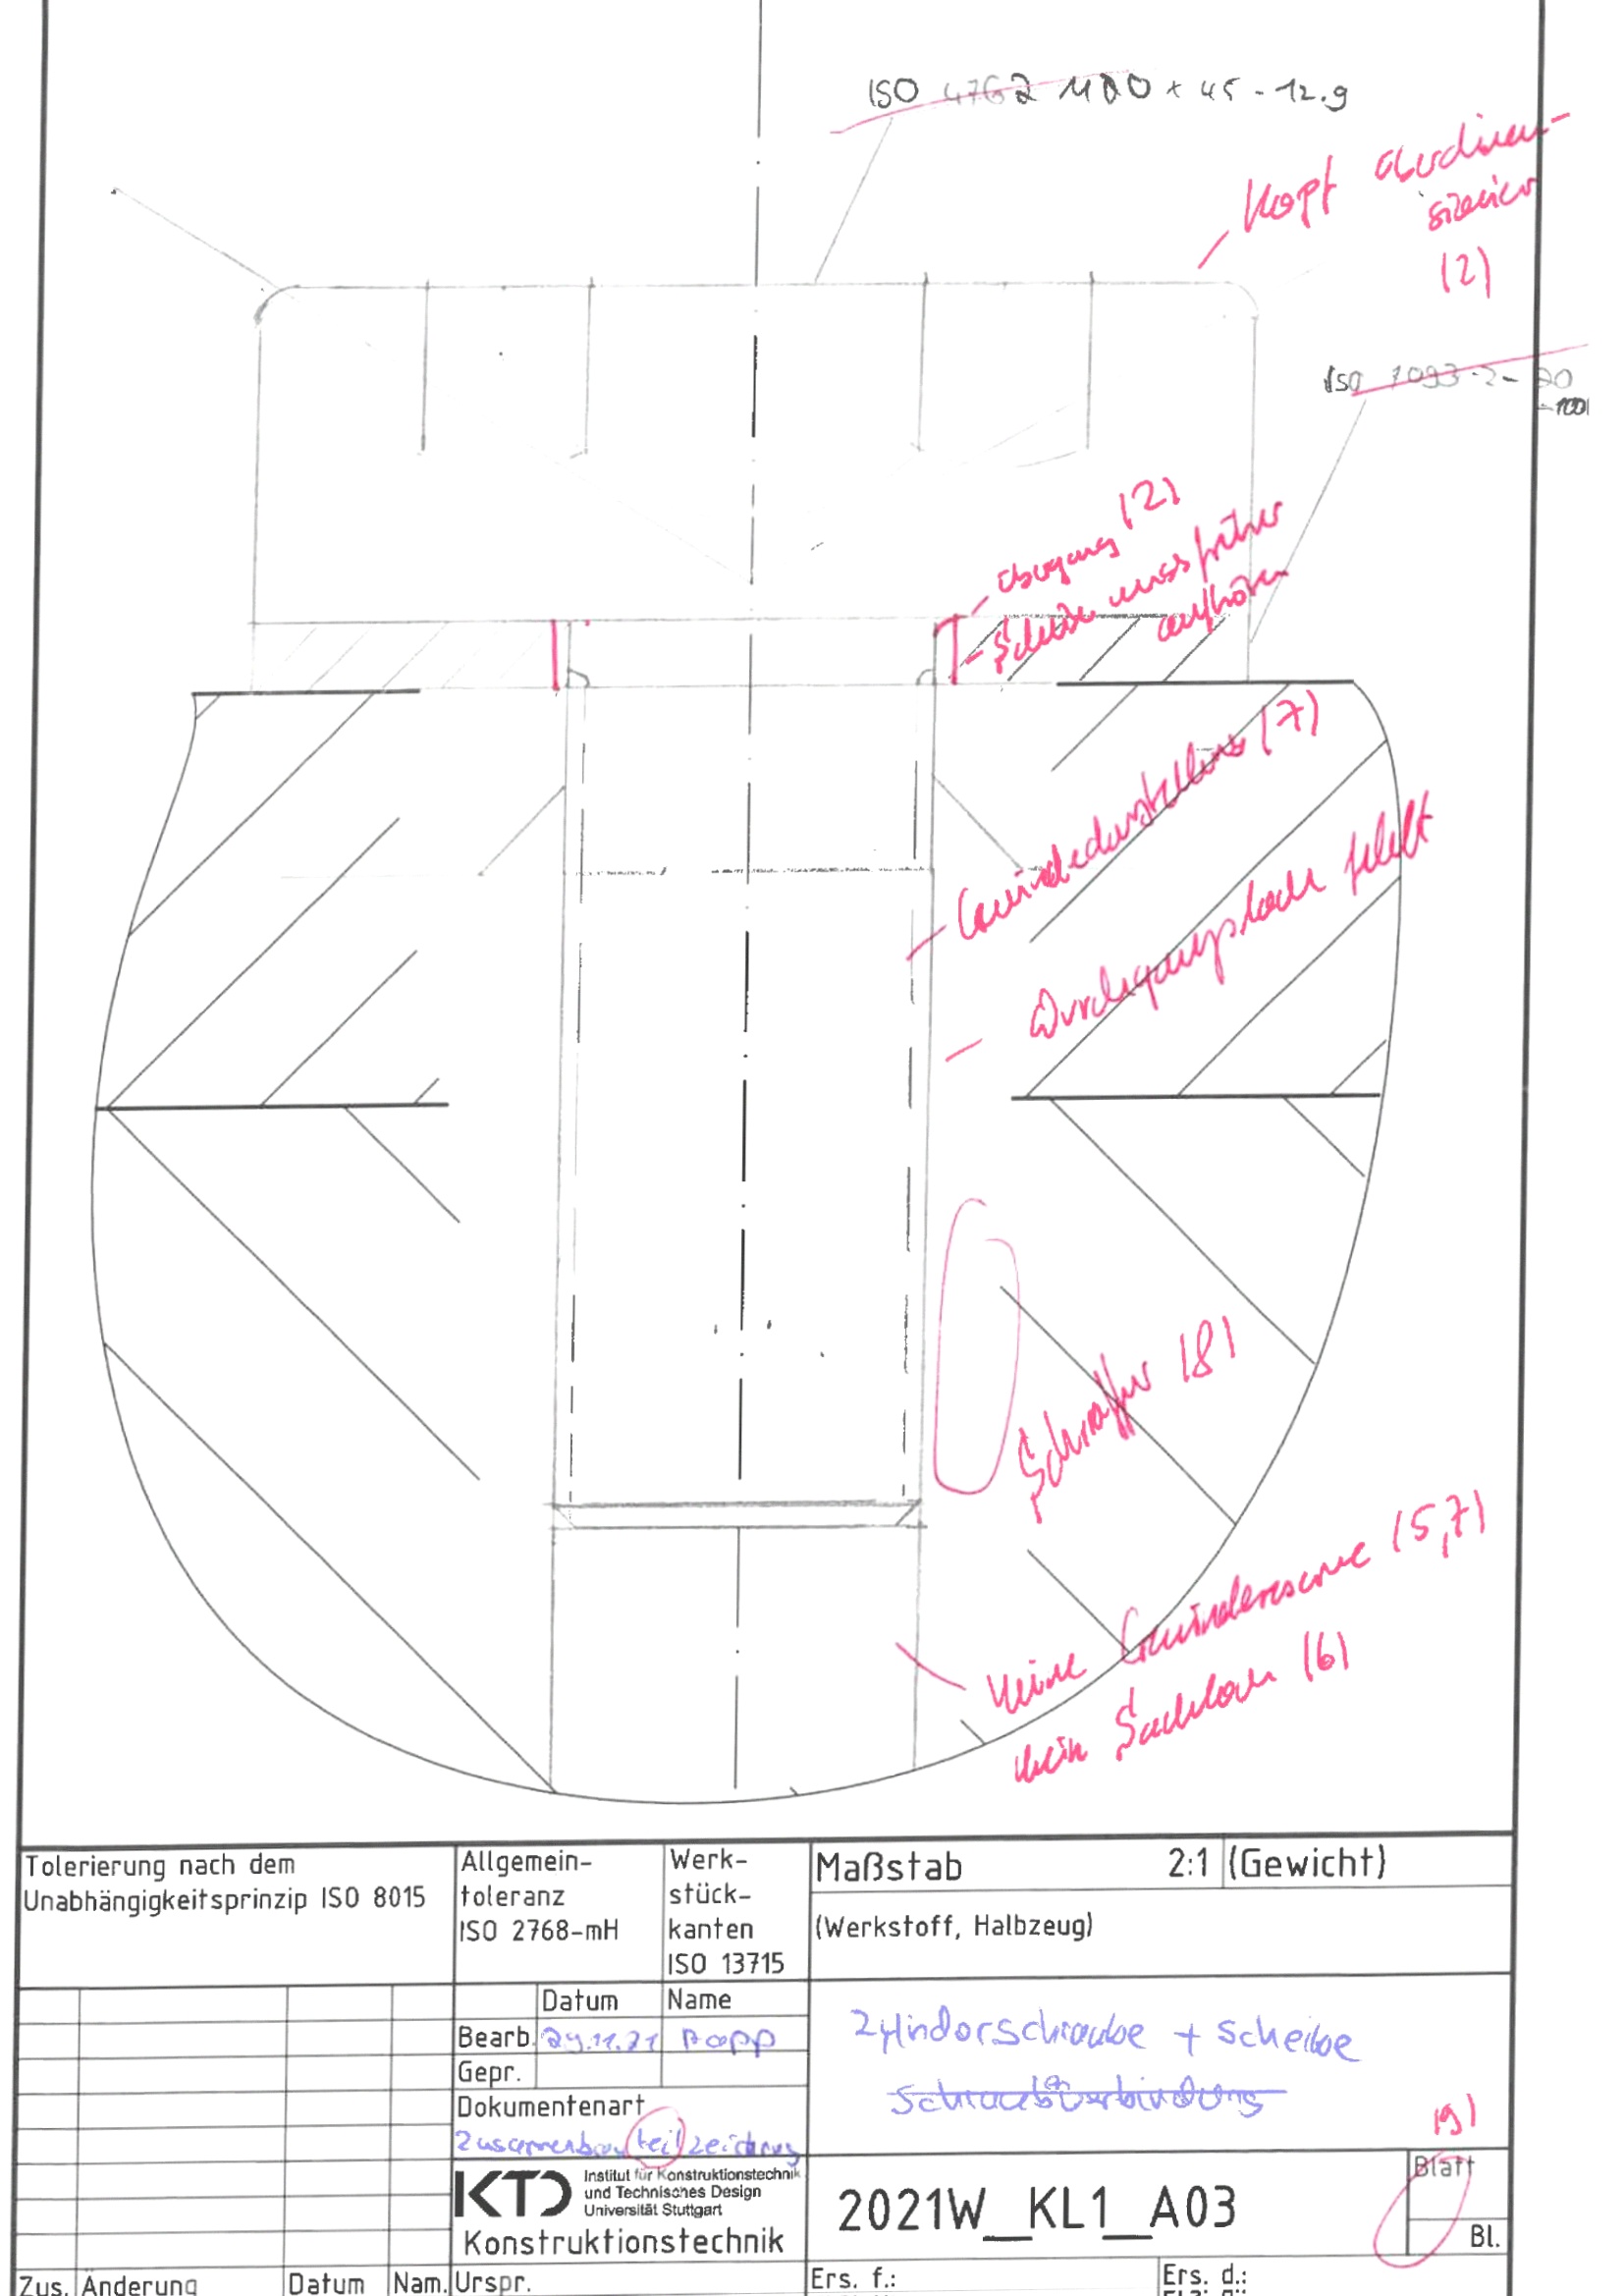 ISO 4762 M20 x 45 - 12.9
Kopf überdimen-
sioniert
(2)
ISO 7093-2-20
Übergang (2)
Scheibe muss früher
aufhören
Gewindedarstellung (7)
Durchgangsloch fehlt
Schraffur (8)
keine Gewindereserve (5,7)
kein Sackloch (6)
Tolerierung nach dem
Unabhängigkeitsprinzip ISO 8015
Allgemein-
toleranz
ISO 2768-mH
Werk-
stück-
kanten
ISO 13715
Maßstab 2:1 (Gewicht)
(Werkstoff, Halbzeug)
Datum Name
Bearb. 29.11.21 Popp
Gepr.
Dokumentenart
Zusammenbauteilzeichnung
Zylinderschraube + Scheibe
Schraubverbindung
(9)
KTD Institut für Konstruktionstechnik
und Technisches Design
Universität Stuttgart
Konstruktionstechnik
2021W_KL1_A03
Blatt
Bl.
Zus. Änderung Datum Nam. Urspr. Ers. f.: Ers. d.: